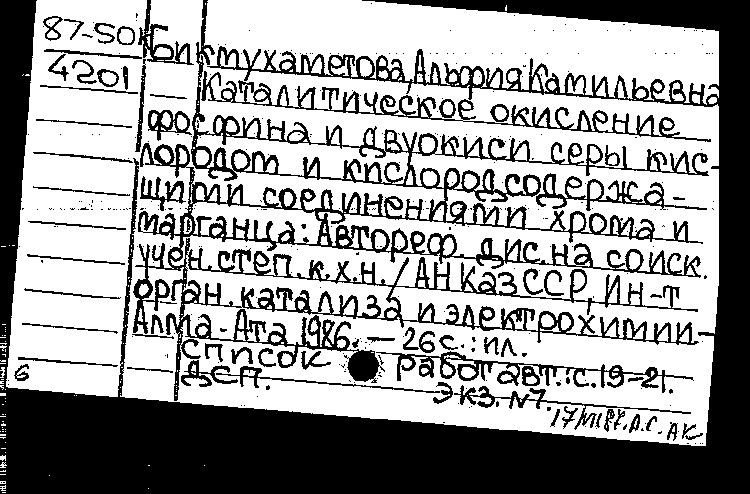 87-50к Бикмухаметова, Альфия Камильевна
4201 Каталитическое окисление
фосфина и двуокиси серы кис-
лородом и кислородсодержа-
щими соединениями хрома и
марганца: Автореф. дис. на соиск.
учен. степ. к.х.н. / АН КазССР, Ин-т
орган. катализа и электрохимии-
Алма-Ата, 1986. — 26с.: ил.
Список работ авт.: с. 19-21.
Деп.
Экз. №7.
б
А.С. АК